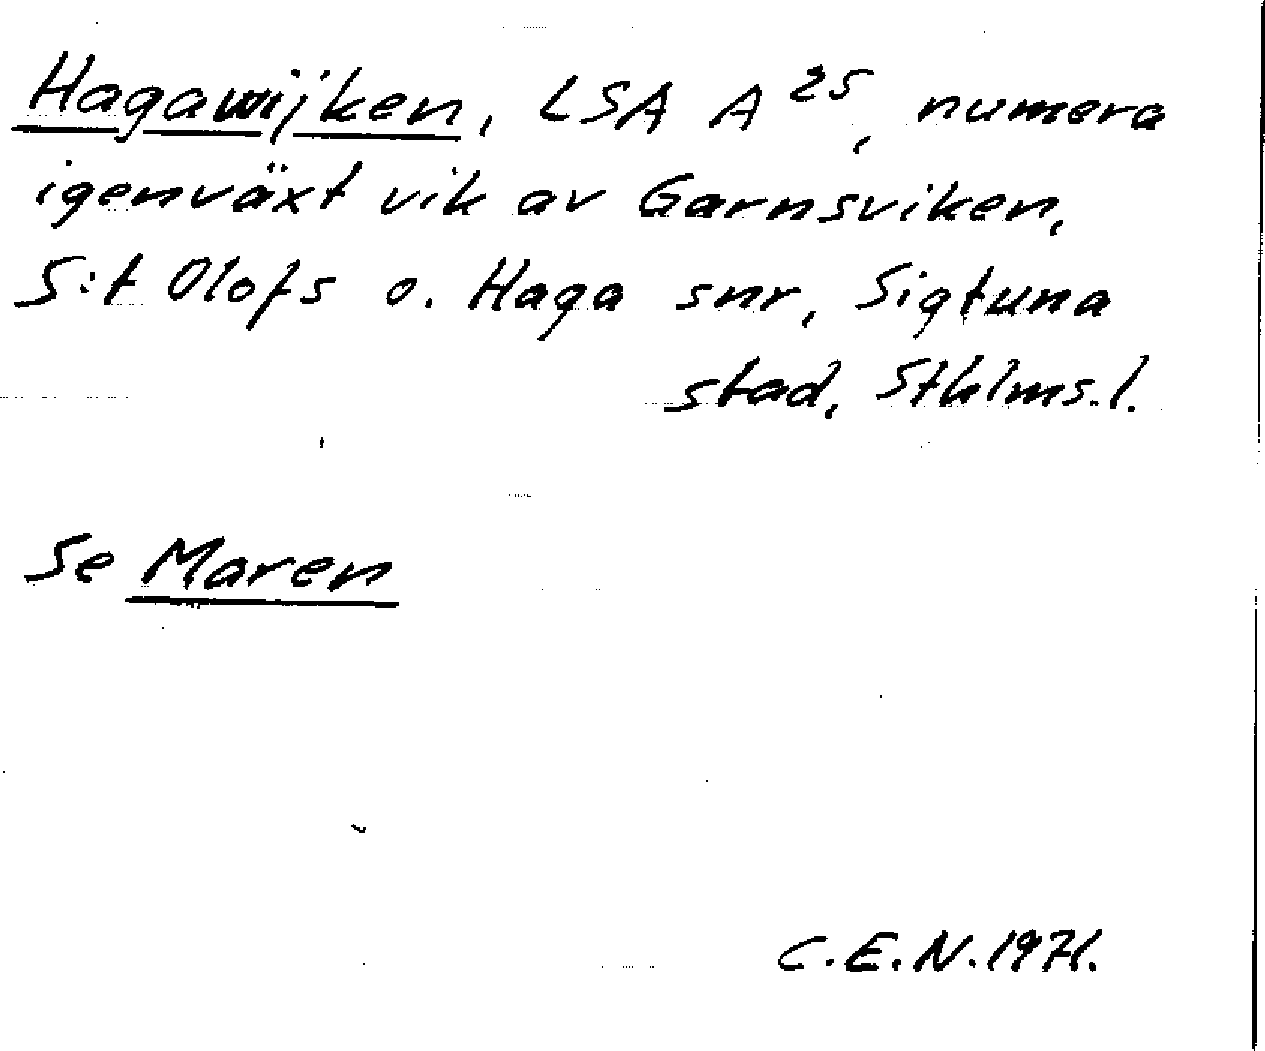 Hagawijken, LSA A 25, numera
igenväxt vik av Garnsviken,
S:t Olofs o. Haga snr, Sigtuna
stad, Sthlms.l.
Se Maren
C.E.N.1971.